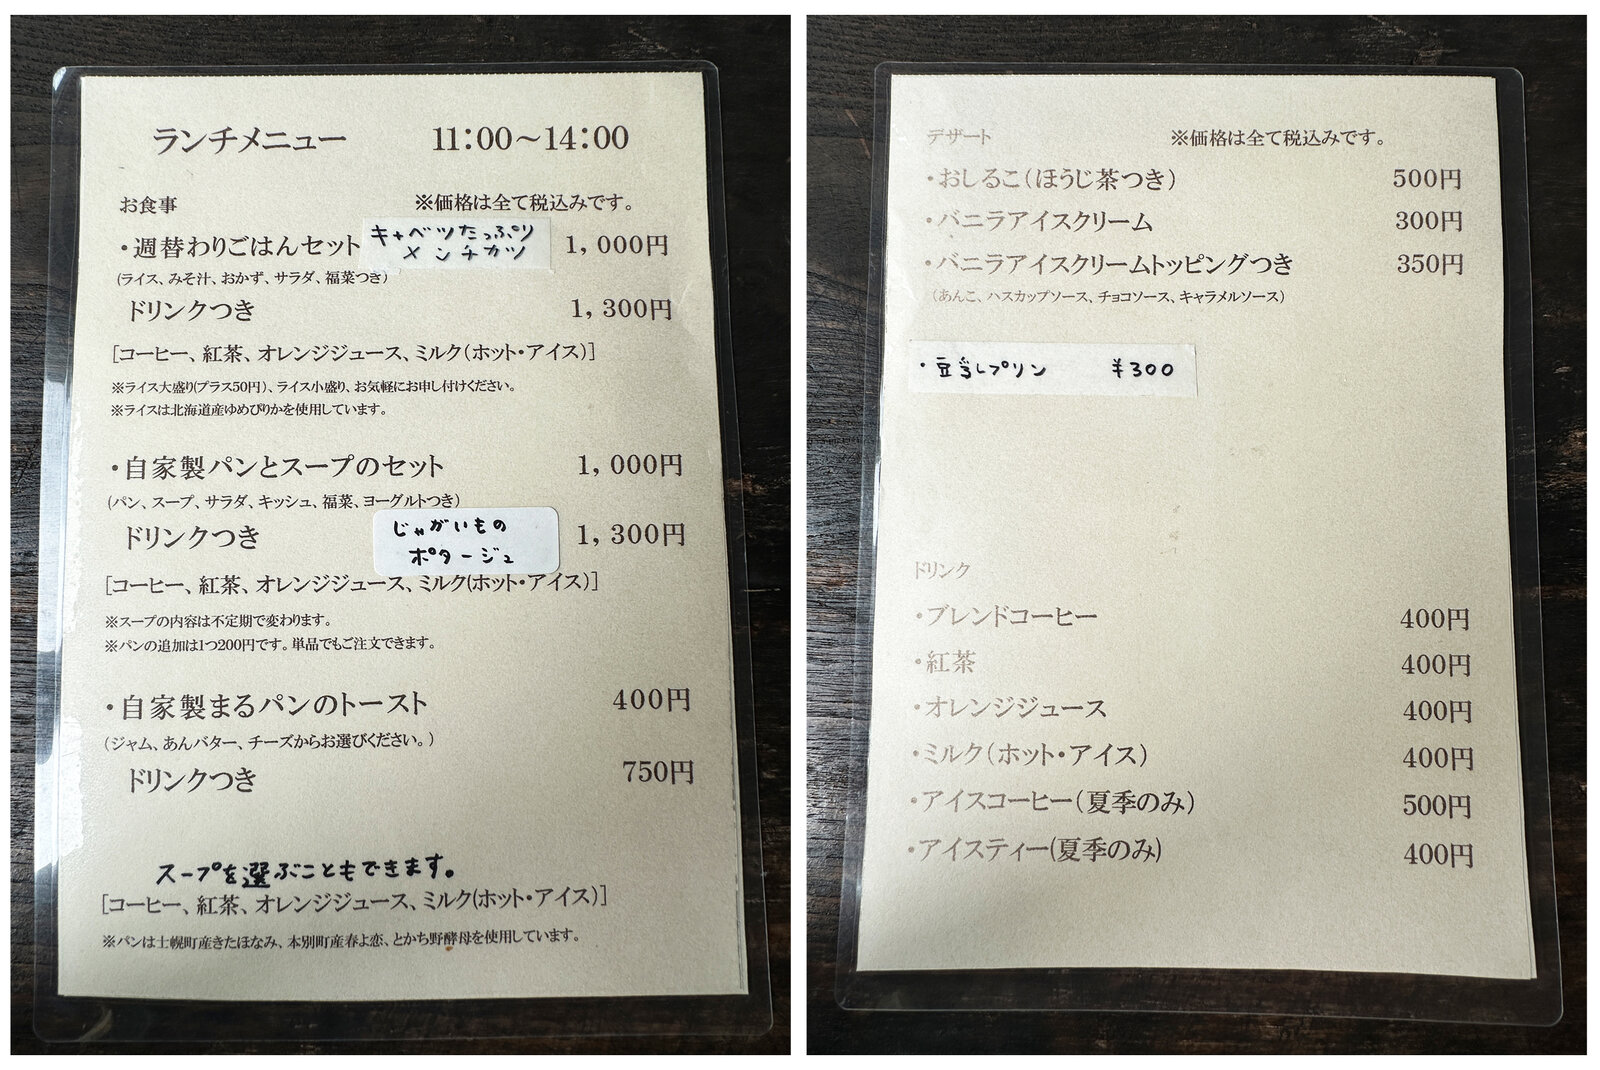 ランチメニュー 11:00～14:00
お食事 ※価格は全て税込みです。
・週替わりごはんセット キャベツたっぷりメンチカツ 1,000円
(ライス、みそ汁、おかず、サラダ、福菜つき)
ドリンクつき 1,300円
[コーヒー、紅茶、オレンジジュース、ミルク(ホット・アイス)]
※ライス大盛り(プラス50円)、ライス小盛り、お気軽にお申し付けください。
※ライスは北海道産ゆめぴりかを使用しています。
・自家製パンとスープのセット 1,000円
(パン、スープ、サラダ、キッシュ、福菜、ヨーグルトつき)
じゃがいもの
ポタージュ
ドリンクつき 1,300円
[コーヒー、紅茶、オレンジジュース、ミルク(ホット・アイス)]
※スープの内容は不定期で変わります。
※パンの追加は1つ200円です。単品でもご注文できます。
・自家製まるパンのトースト 400円
(ジャム、あんバター、チーズからお選びください。)
ドリンクつき 750円
スープを選ぶこともできます。
[コーヒー、紅茶、オレンジジュース、ミルク(ホット・アイス)]
※パンは士幌町産きたほなみ、本別町産春よ恋、とかち野酵母を使用しています。
デザート ※価格は全て税込みです。
・おしるこ(ほうじ茶つき) 500円
・バニラアイスクリーム 300円
・バニラアイスクリームトッピングつき 350円
(あんこ、ハスカップソース、チョコソース、キャラメルソース)
・豆乎しプリン ¥300
ドリンク
・ブレンドコーヒー 400円
・紅茶 400円
・オレンジジュース 400円
・ミルク(ホット・アイス) 400円
・アイスコーヒー(夏季のみ) 500円
・アイスティー(夏季のみ) 400円